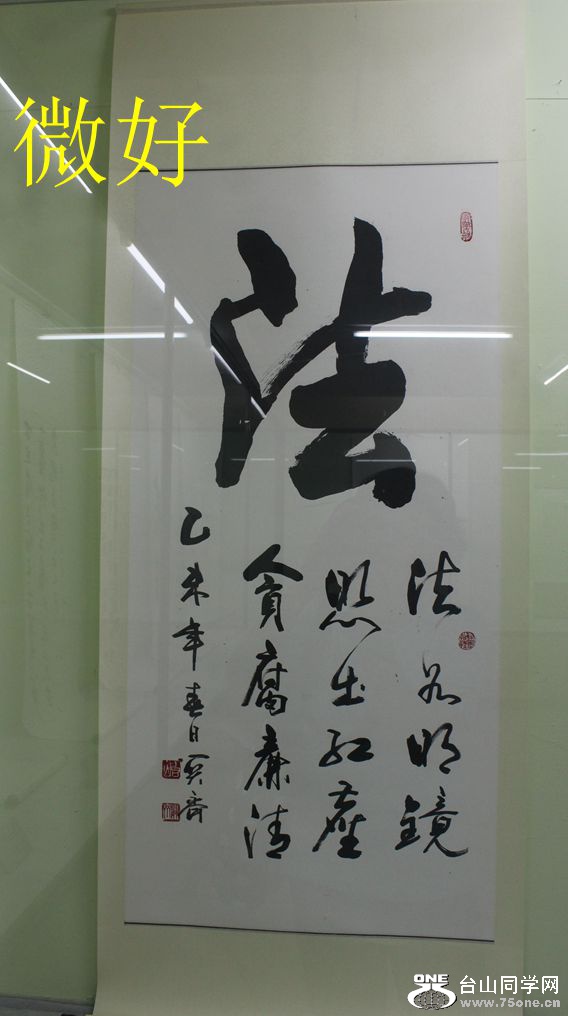 微好
法
法如明镜
照出红尘
贪腐廉清
乙未年春日
ONE
台山同学网
www.75one.cn